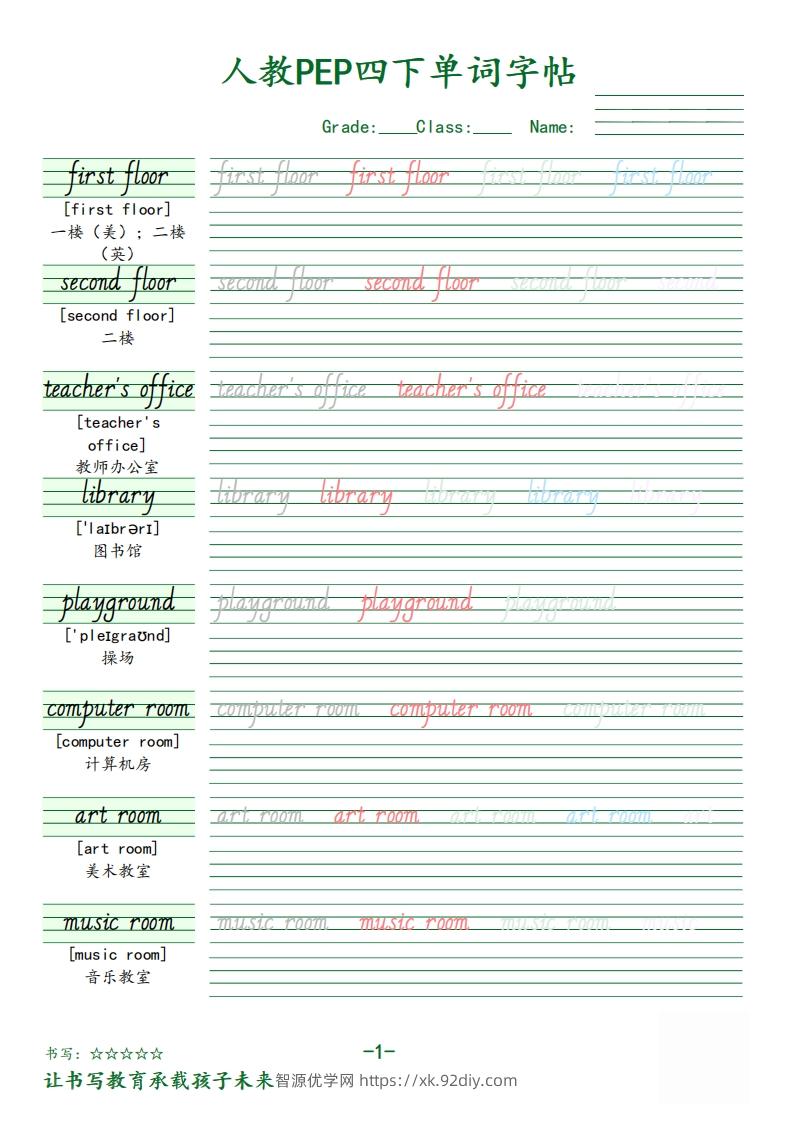 人教PEP四下单词字帖
Grade:____Class:____ Name:
first floor first floor first floor first floor first floor
[first floor]
一楼（美）；二楼
（英）
second floor second floor second floor second floor second
[second floor]
二楼
teacher's office teacher's office teacher's office teacher's office
[teacher's
office]
教师办公室
library library library library library library
['laɪbrərɪ]
图书馆
playground playground playground playground
['pleɪgraʊnd]
操场
computer room computer room computer room computer room
[computer room]
计算机房
art room art room art room art room art room art
[art room]
美术教室
music room music room music room music room music
[music room]
音乐教室
书写：☆☆☆☆☆
-1-
让书写教育承载孩子未来智源优学网 https://xk.92diy.com